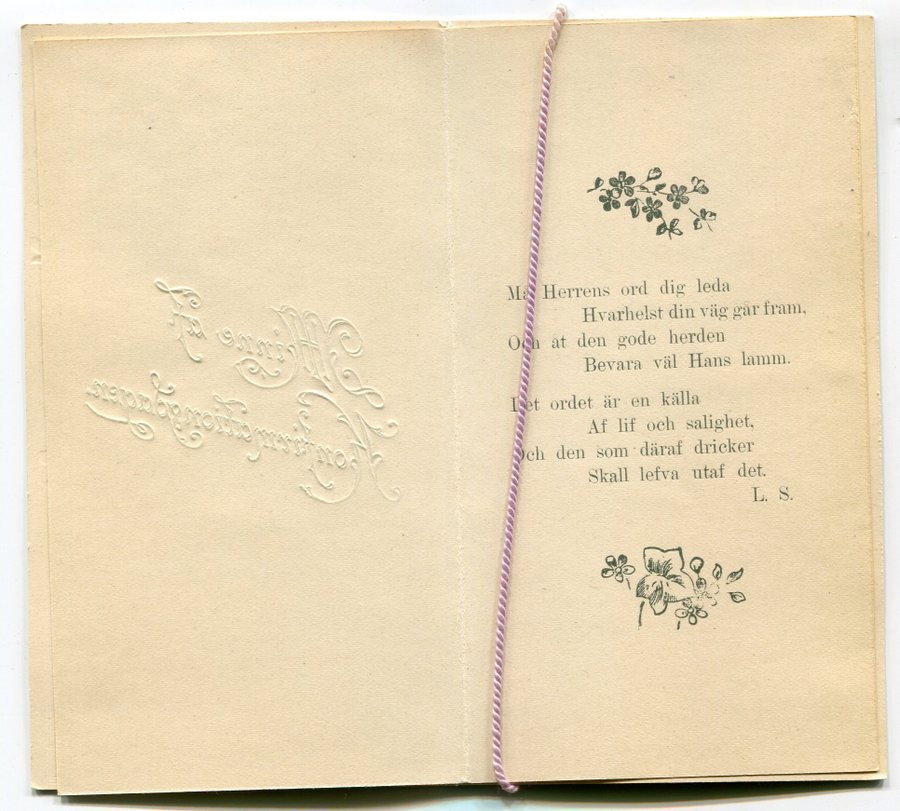 Till Minne af
Konfirmationsdagen
Må Herrens ord dig leda
Hvarhelst din väg går fram,
Och åt den gode herden
Bevara väl Hans lamm.
Det ordet är en källa
Af lif och salighet,
Och den som däraf dricker
Skall lefva utaf det.
L. S.